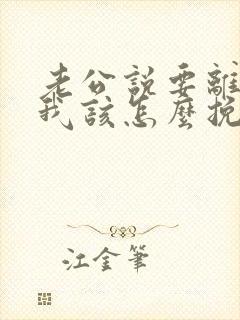 老公說要離
我該怎麼挽
江金筆